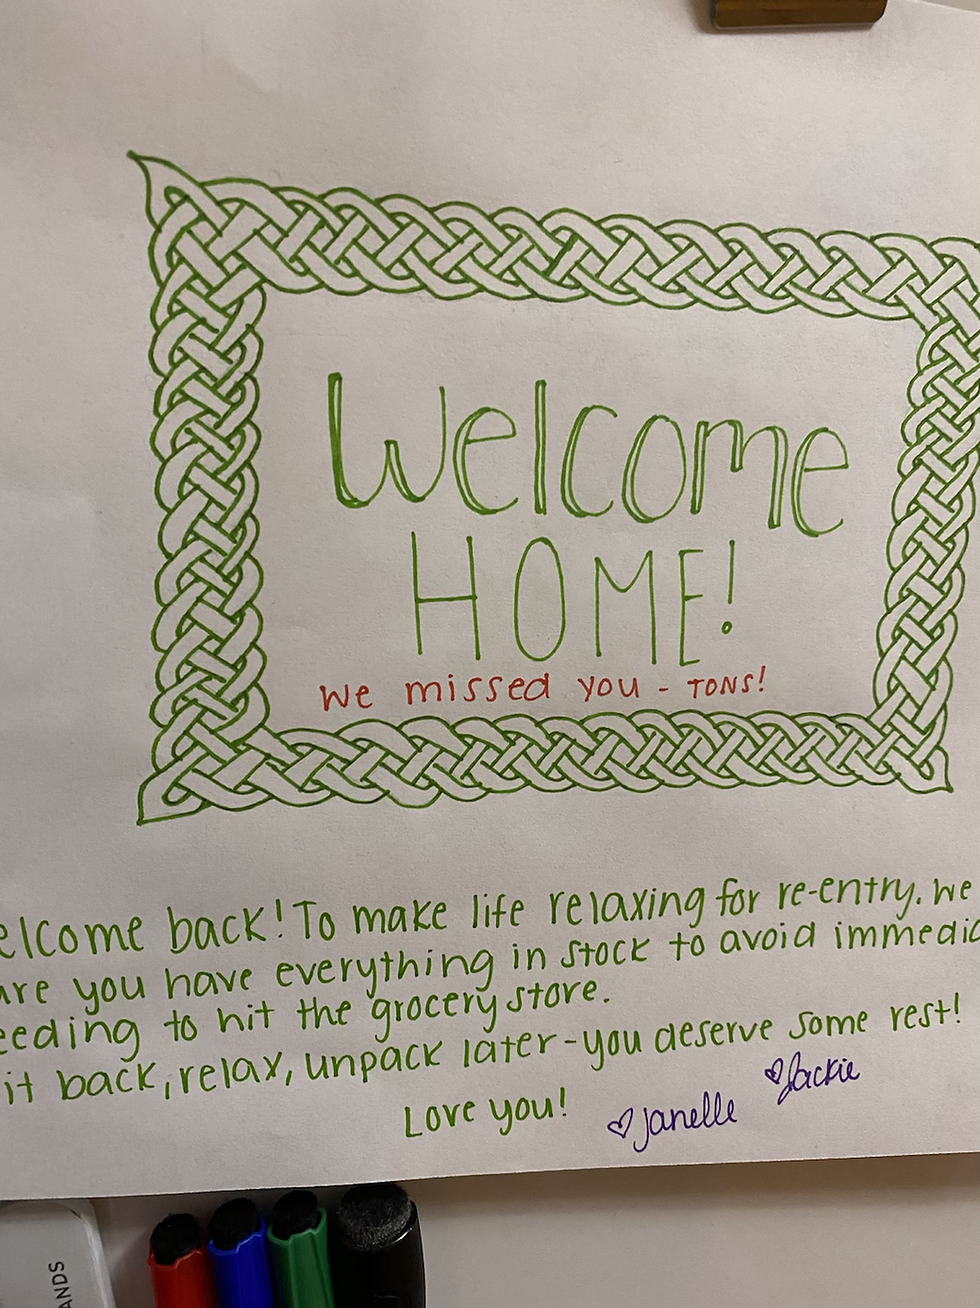 Welcome
HOME!
We missed you - TONS!
elcome back! To make life relaxing for re-entry. We
are you have everything in stock to avoid immedia
eeding to hit the grocery store.
it back, relax, unpack later - you deserve some rest!
Love you!
Janelle
Jackie
ANDS